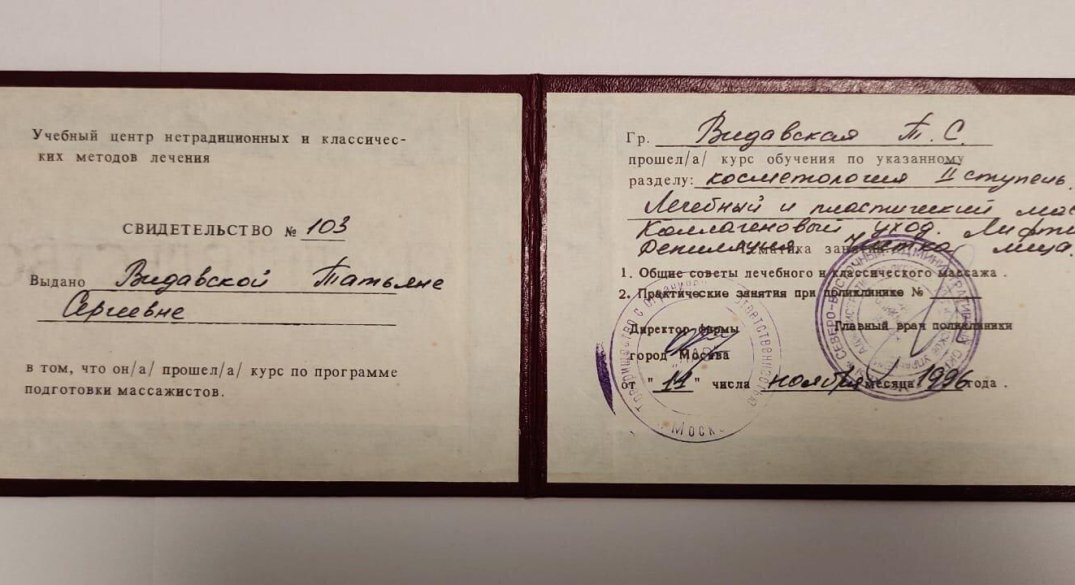 Учебный центр нетрадиционных и классичес-
ких методов лечения
СВИДЕТЕЛЬСТВО № 103
Выдано Видавской Татьяне
Сергеевне
в том, что он/а/ прошел/а/ курс по программе
подготовки массажистов.
Гр. Видавская Т. С.
прошел/а/ курс обучения по указанному
разделу: косметология II ступень.
Лечебный и пластический мас
Коллагеновый уход. Лифти
Депиляция. Чистка лица.
Тематика заняти
1. Общие советы лечебного и классического массажа.
2. Практические занятия при поликлинике №
Директор фирмы
Главный врач поликлиники
город Москва
от "11" числа ноября месяца 1996 года.
Товарищество с ограниченной ответственностью
Москва
СЕВЕРО-ВОСТОЧНЫЙ АДМИНИСТРАТИВНЫЙ